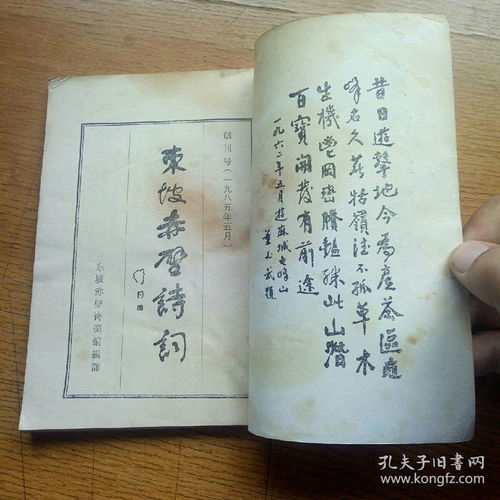 创刊号(一九八五年五月)
東坡赤壁詩詞
东坡赤壁诗词编辑部
昔日遊擊地今為產茶區龜
峰名久著牯嶺不孤草木
生機岡巒騰殊此山潛
百寶開發有前途
一九六二年五月遊麻城龜峰山
董必武題
孔夫子旧书网
www.kongfz.com